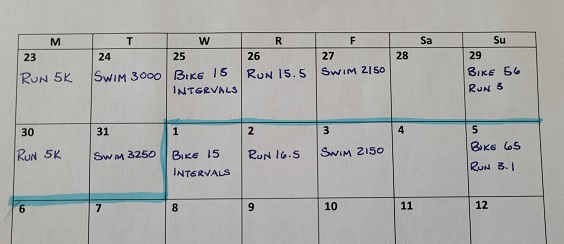 M T W R F Sa Su
23 24 25 26 27 28 29
RUN 5K SWIM 3000 BIKE 15 RUN 15.5 SWIM 2150 BIKE 56
INTERVALS RUN 3
30 31 1 2 3 4 5
RUN 5K SWIM 3250 BIKE 15 RUN 16.5 SWIM 2150 BIKE 65
INTERVALS RUN 3.1
6 7 8 9 10 11 12